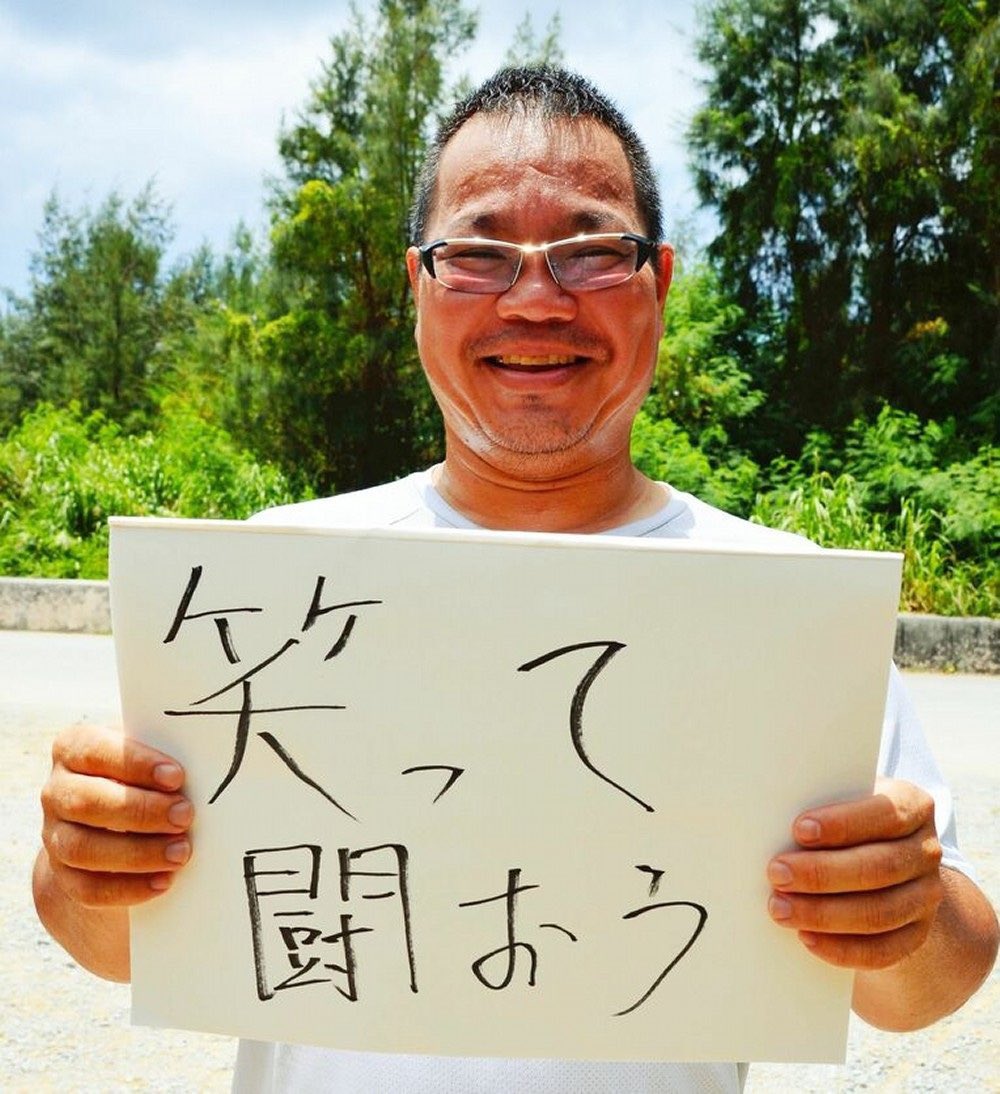 笑って
闘おう